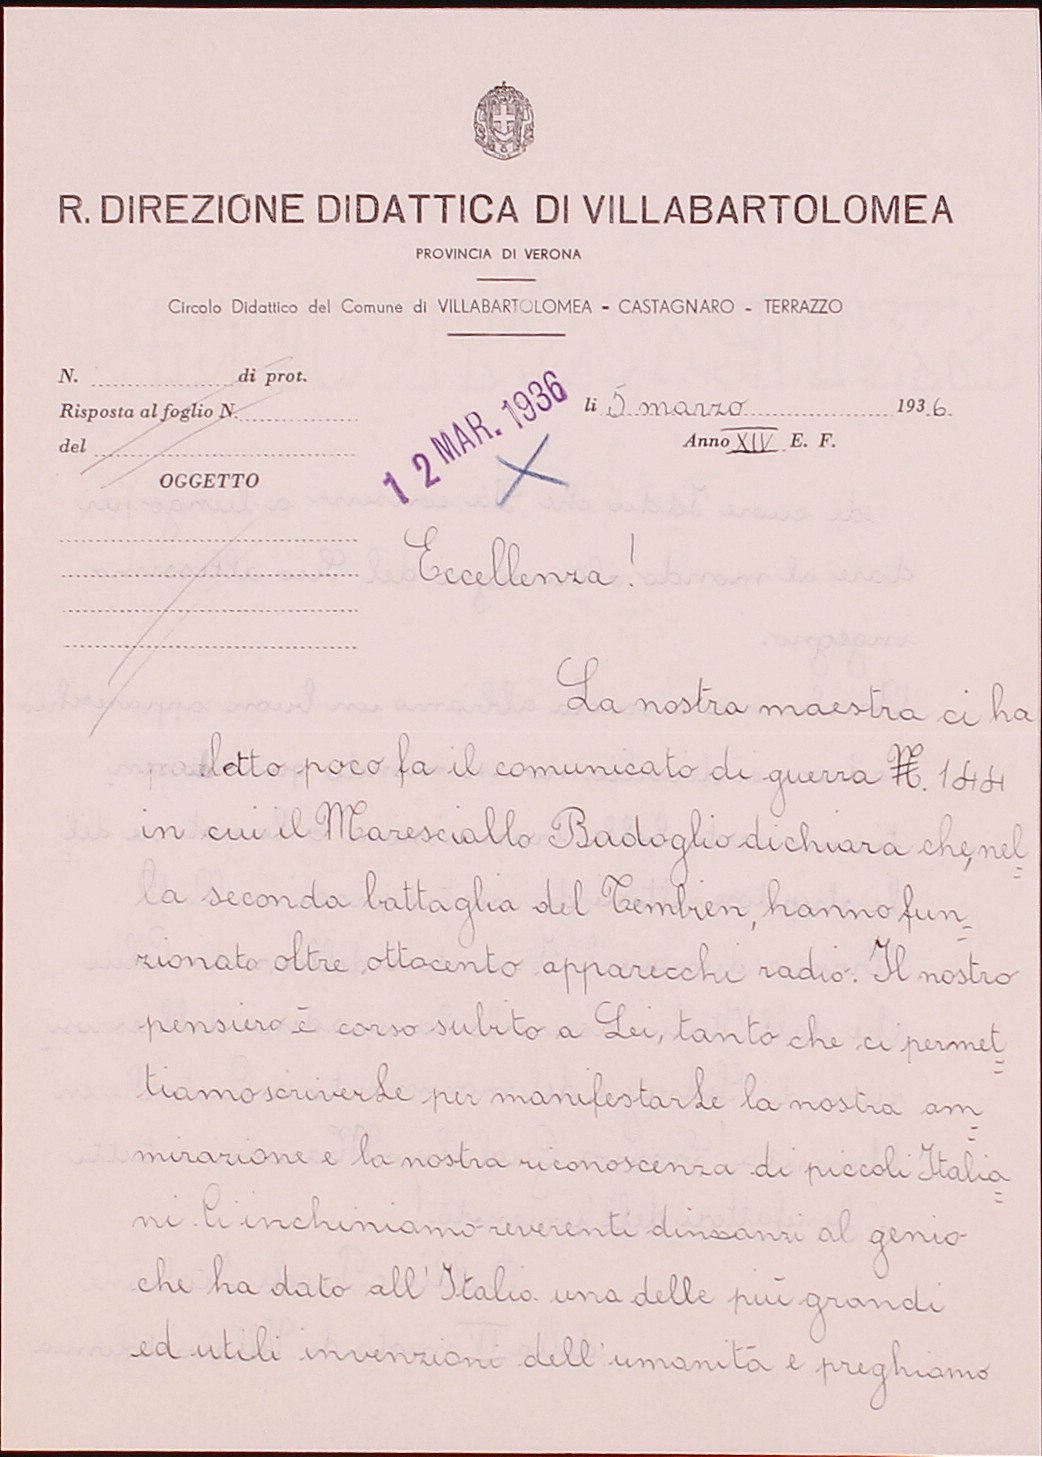 R. DIREZIONE DIDATTICA DI VILLABARTOLOMEA
PROVINCIA DI VERONA
Circolo Didattico del Comune di VILLABARTOLOMEA - CASTAGNARO - TERRAZZO
N. di prot.
Risposta al foglio N.
del
OGGETTO
12 MAR. 1936
li 5 marzo 1936.
Anno XIV E. F.
Eccellenza!
La nostra maestra ci ha
letto poco fa il comunicato di guerra N. 144
in cui il Maresciallo Badoglio dichiara che, nel=
la seconda battaglia del Tembien, hanno fun=
zionato oltre ottocento apparecchi radio. Il nostro
pensiero è corso subito a Lei, tanto che ci permet=
tiamo scriverLe per manifestarLe la nostra am=
mirazione e la nostra riconoscenza di piccoli Italia=
ni. Ci inchiniamo reverenti dinanzi al genio
che ha dato all'Italia una delle più grandi
ed utili invenzioni dell'umanità e preghiamo